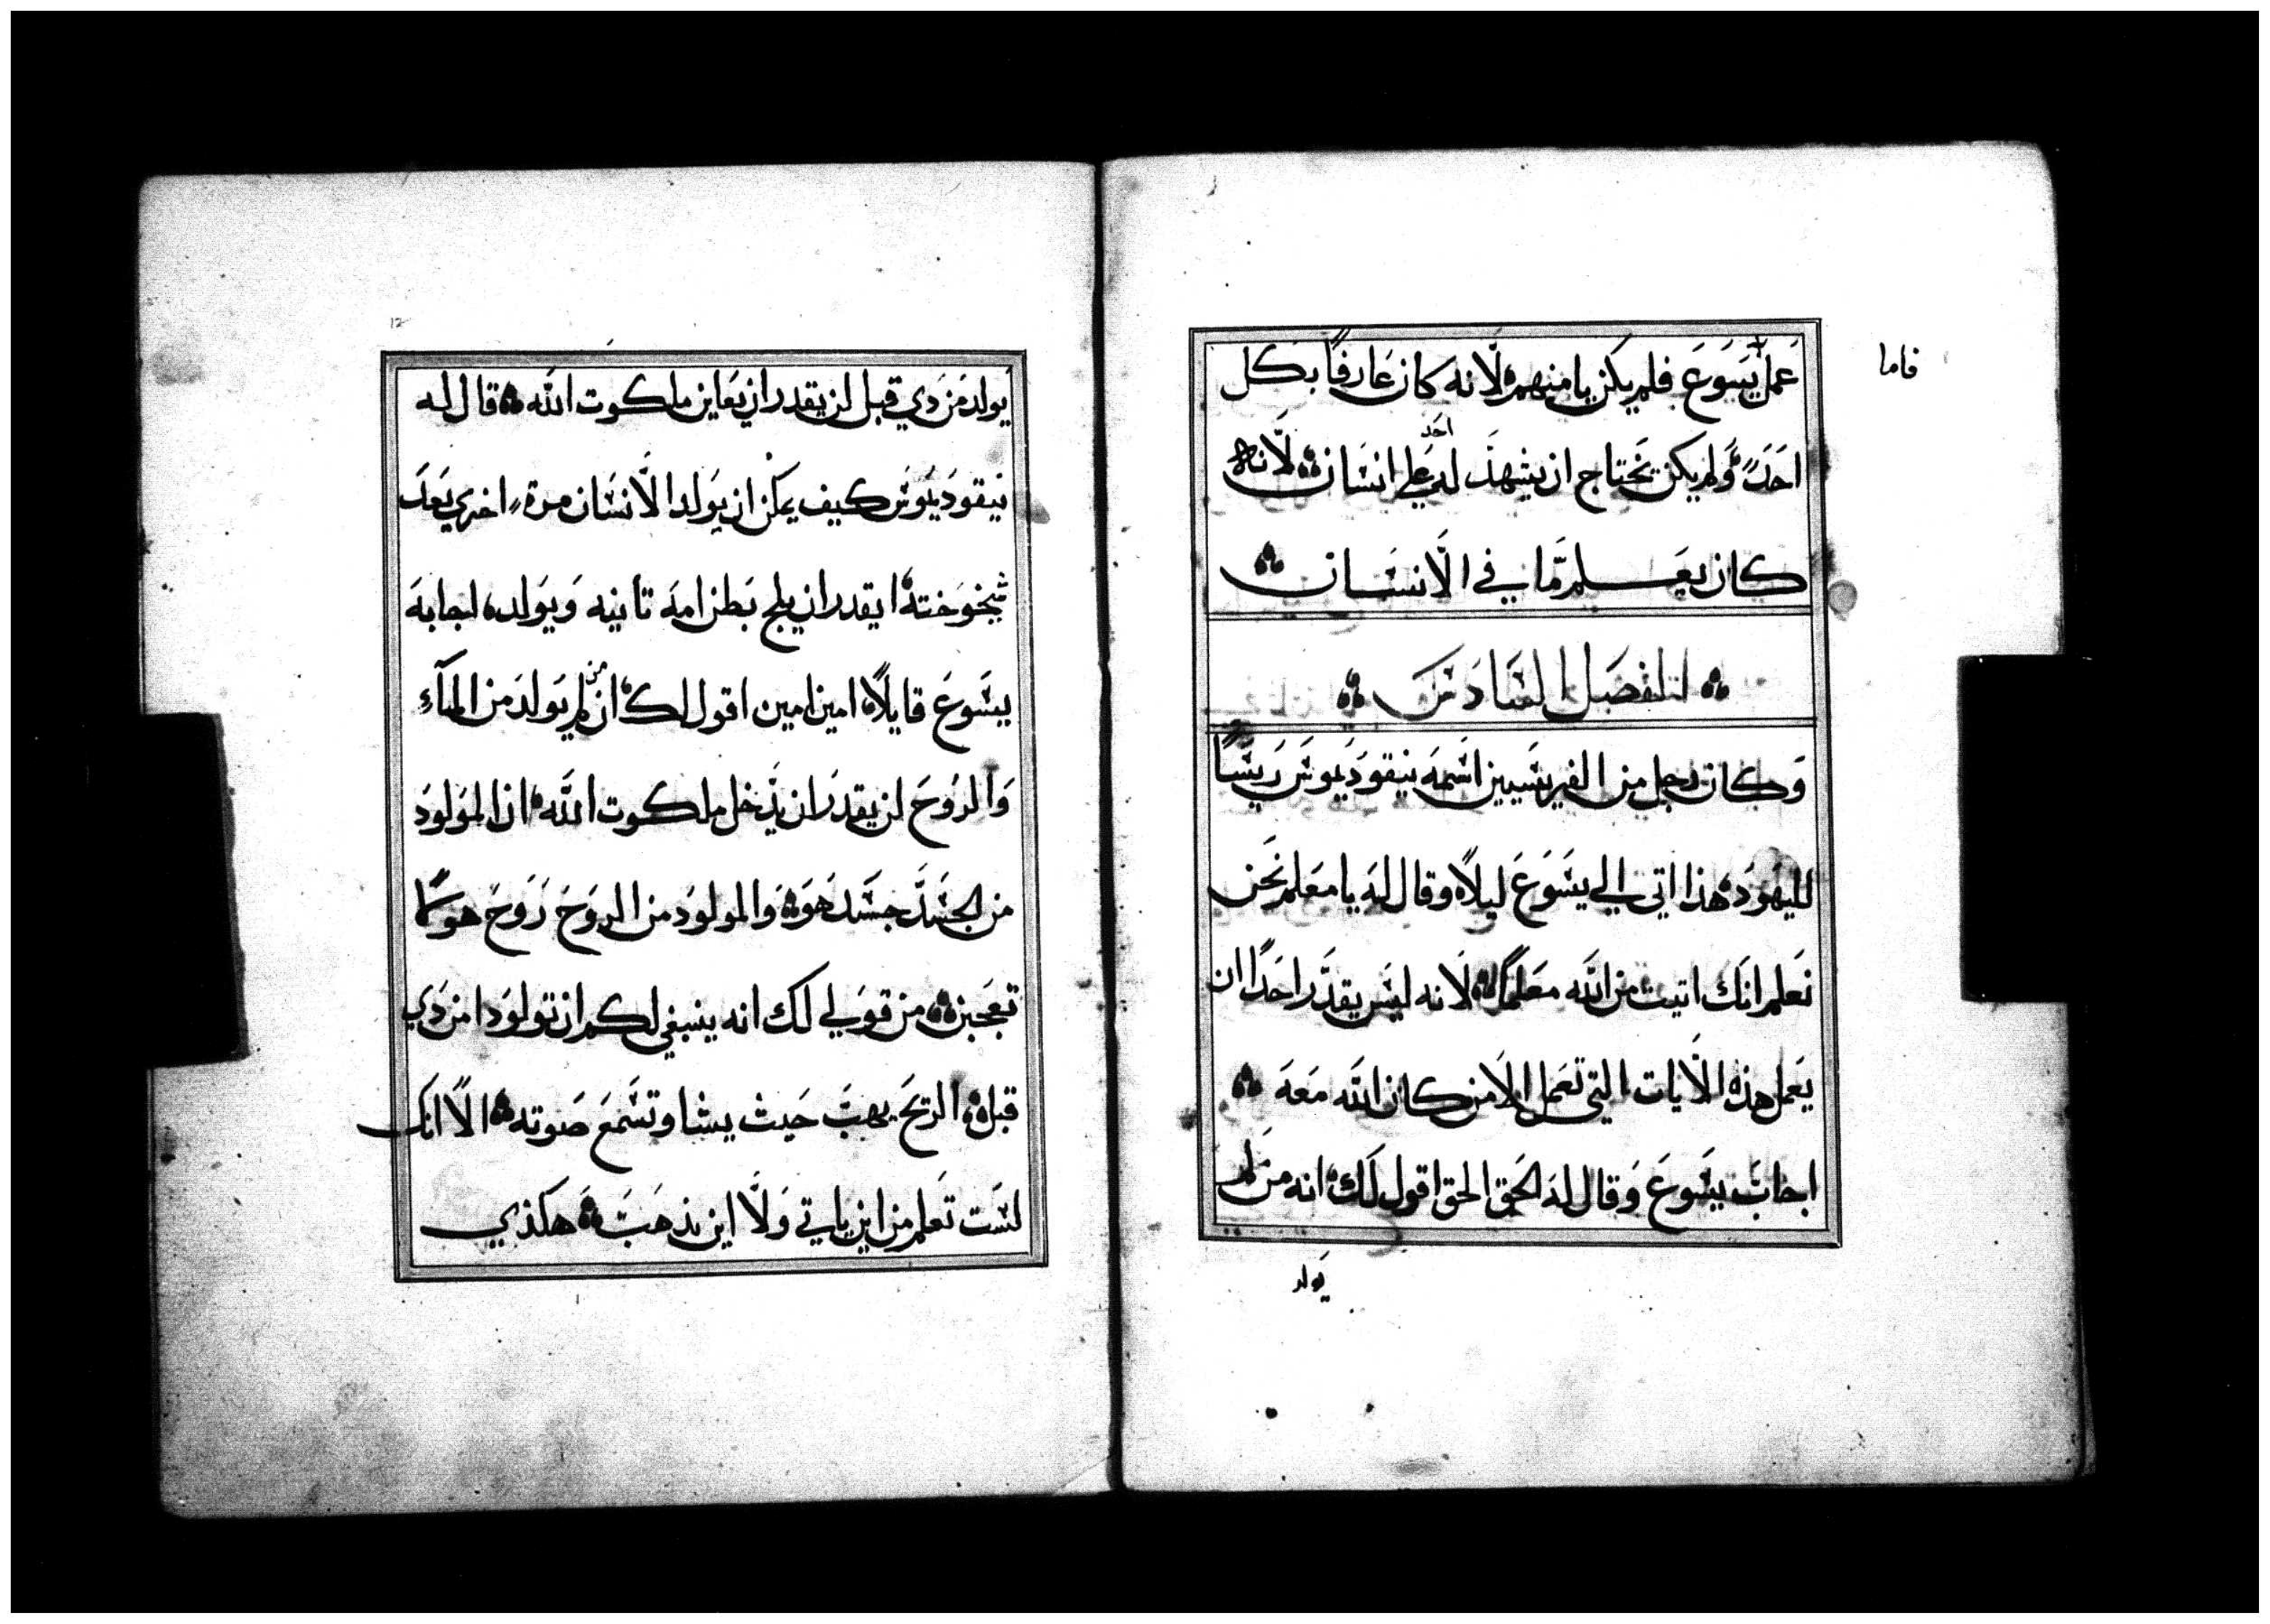 فاما
عمل يسوع فلم يكن يامنهم لانه كان عارفا بكل
احد ولم يكن يحتاج ان يشهد له احد علي انسان لانه
كان يعلم ما في الانسان
الفصل السادس
وكان رجل من الفريسيين اسمه نيقوديموس ريسا
لليهود هذا اتي الي يسوع ليلا وقال له يا معلم نحن
نعلم انك اتيت من الله معلما لانه ليس يقدر احدا ان
يعمل هذه الايات التي تعمل الا من كان الله معه
اجاب يسوع وقال له الحق الحق اقول لك انه من لم
يولد
12
يولد من دي قبل لن يقدر ان يعاين ملكوت الله قال له
نيقوديموس كيف يمكن ان يولد الانسان مرة اخري بعد
شيخوخته ايقدر ان يلج بطن امه تانيه ويولد اجابه
يسوع قايلا امين امين اقول لك ان من لم يولد من المآء
والروح لن يقدر ان يدخل ملكوت الله ان المولود
من الجسد جسد هو والمولود من الروح روح هو كما
تعجبن من قولي لك انه ينبغي لكم ان تولودا من دي
قبل الريح يهب حيث يشا وتسمع صوته الا انك
لست تعلم من اين ياتي ولا اين يذهب هكذي